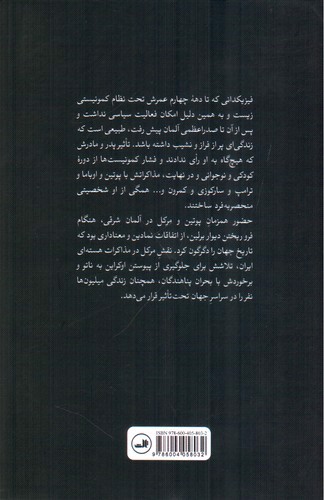 فیزیکدانی که تا دههٔ چهارم عمرش تحت نظام کمونیستی
زیست و به همین دلیل امکان فعالیت سیاسی نداشت و
پس از آن تا صدراعظمی آلمان پیش رفت، طبیعی است که
زندگی‌ای پر از فراز و نشیب داشته باشد. تأثیر پدر و مادرش
که هیچ‌گاه به او رأی ندادند و فشار کمونیست‌ها از دورهٔ
کودکی و نوجوانی و در نهایت، مذاکراتش با پوتین و اوباما و
ترامپ و سارکوزی و کمرون و... همگی از او شخصیتی
منحصربه‌فرد ساختند.
حضور همزمان پوتین و مرکل در آلمان شرقی، هنگام
فرو ریختن دیوار برلین، از اتفاقات نمادین و معناداری بود که
تاریخ جهان را دگرگون کرد. نقش مرکل در مذاکرات هسته‌ای
ایران، تلاشش برای جلوگیری از پیوستن اوکراین به ناتو و
برخوردش با بحران پناهندگان، همچنان زندگی میلیون‌ها
نفر را در سراسر جهان تحت تأثیر قرار می‌دهد.
ISBN: 978-600-405-803-2
9 786004 058032